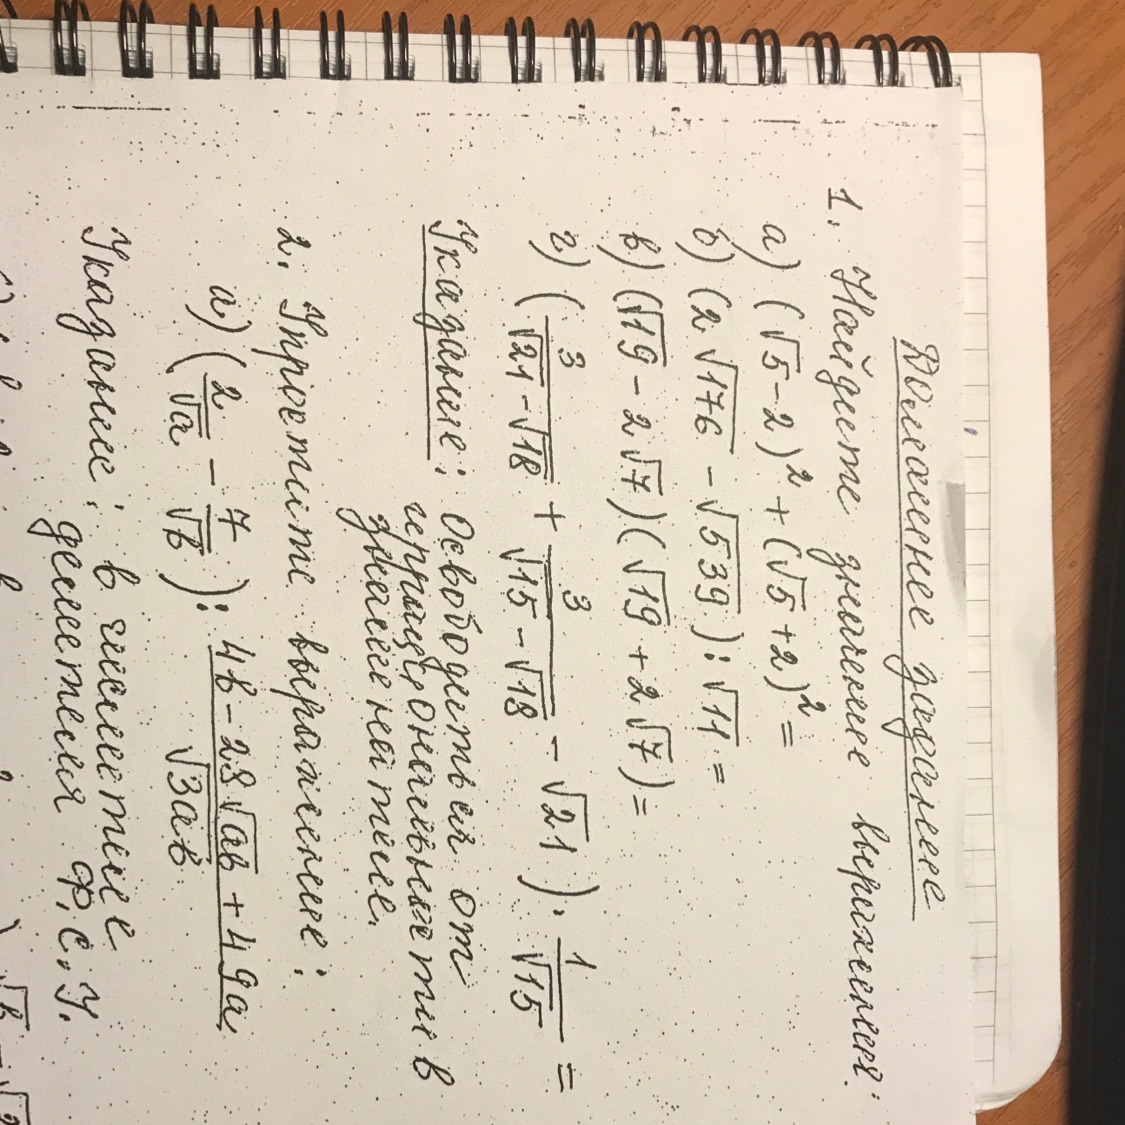 Домашнее задание
1. Найдите значение выражения:
а) (√5-2)² + (√5+2)² =
б) (2√176 - √539) : √11 =
в) (√19 - 2√7)(√19 + 2√7) =
г) (3/(√21-√18) + 3/(√15-√18) - √21) · 1/√15 =
Указание: Освободиться от
иррациональности в
знаменателе.
2. Упростите выражение:
а) (2/√a - 7/√b) : (4b - 28√ab + 49a)/√3ab
Указание: в числителе
делителя Ф.С.У.